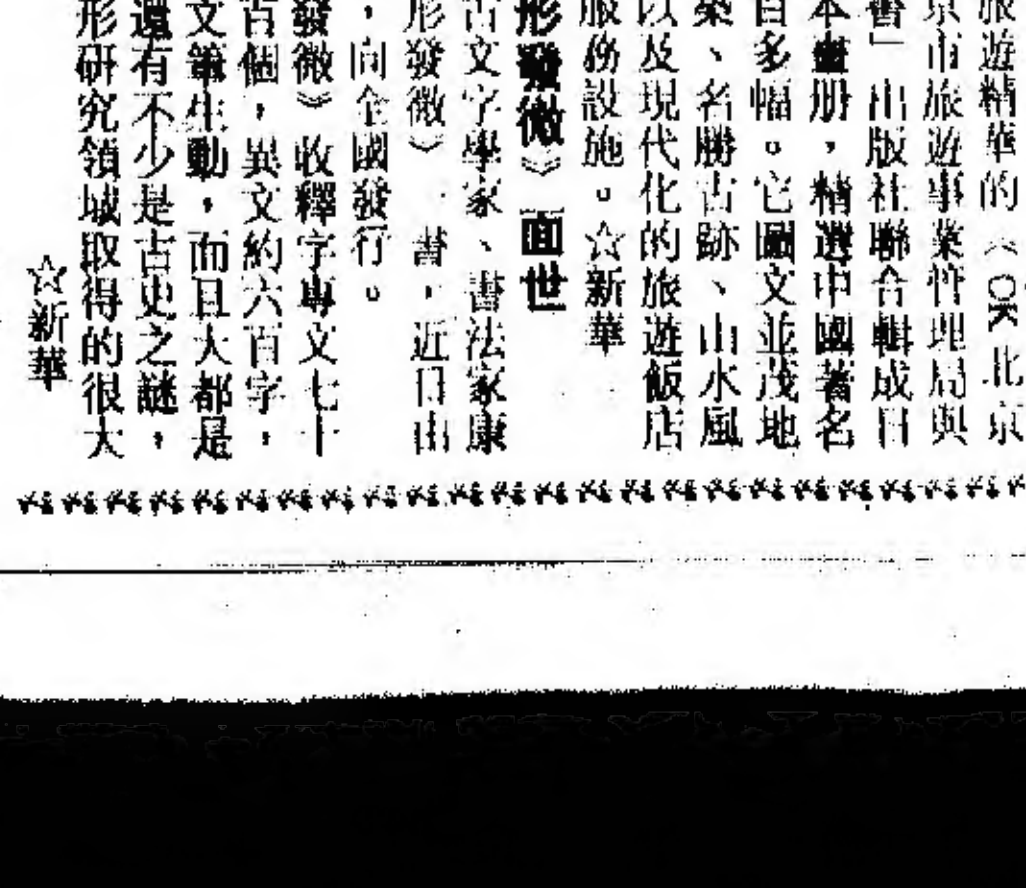 旅遊精華的《OK北京
京市旅遊事業管理局與
書」出版社聯合輯成目
本畫册，精選中國著名
百多幅。它圖文並茂地
築、名勝古跡、山水風
以及現代化的旅遊飯店
服務設施。☆新華
形發微》面世
古文字學家、書法家康
形發微》一書，近日由
，向全國發行。
發微》收釋字專文七十
百個，異文約六百字，
文筆生動，而且大都是
還有不少是古史之謎，
形研究領域取得的很大
☆新華